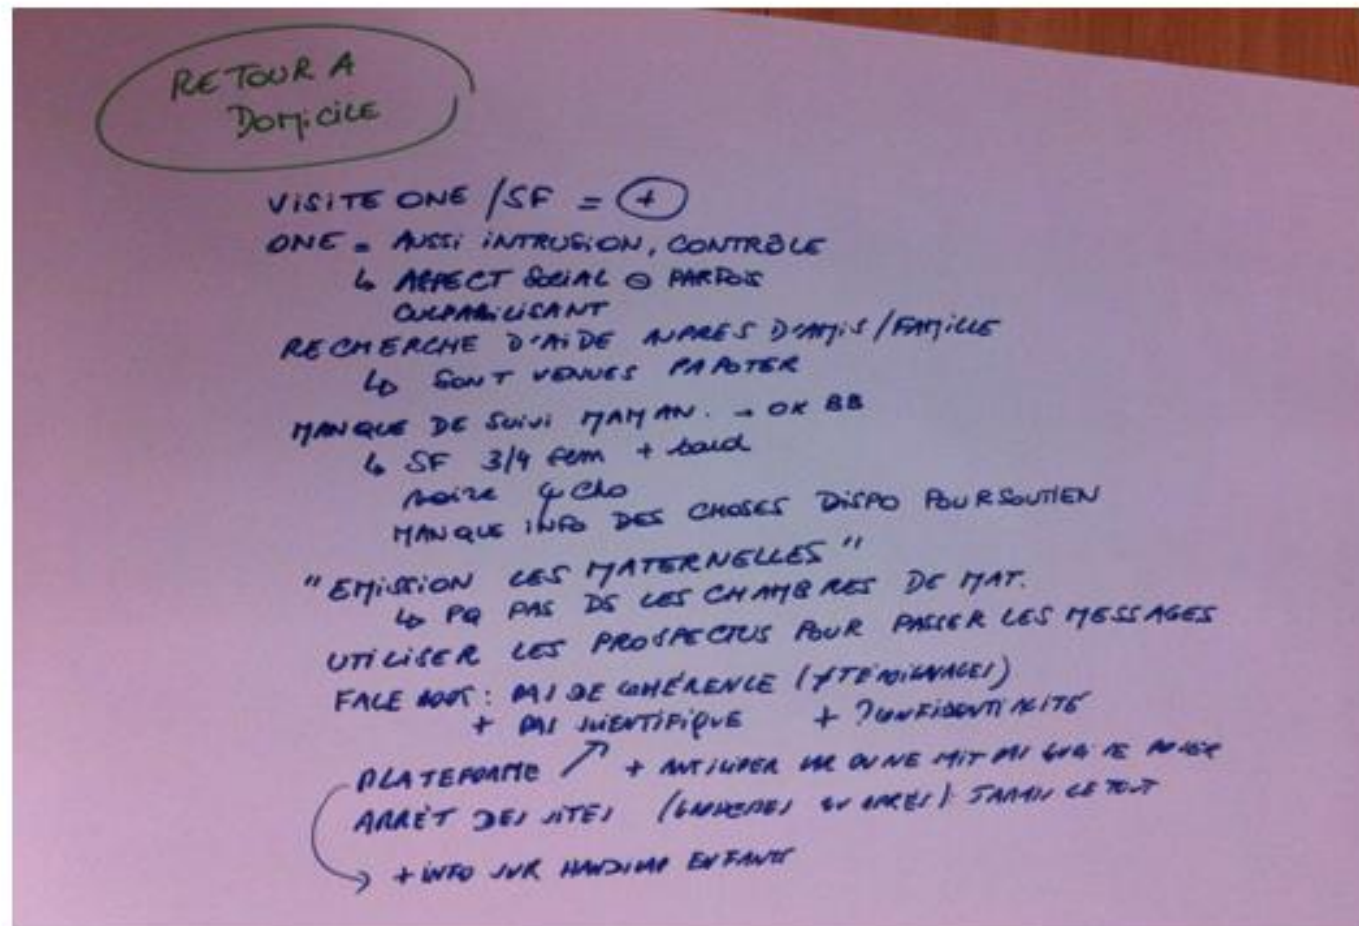 RETOUR A
DOMICILE
VISITE ONE / SF = +
ONE = AUSSI INTRUSION, CONTRÔLE
↳ ASPECT SOCIAL ⊖ PARFOIS
CULPABILISANT
RECHERCHE D'AIDE AUPRES D'AMIS / FAMILLE
↳ SONT VENUES PAPOTER
MANQUE DE SUIVI MAMAN. → OK BB
↳ SF 3/4 sem +
MANQUE INFO DES CHOSES DISPO POUR SOUTIEN
"EMISSION LES MATERNELLES"
↳ PQ PAS DS LES CHAMBRES DE MAT.
UTILISER LES PROSPECTUS POUR PASSER LES MESSAGES
FACE BOOK : PAS DE COHÉRENCE (≠ TÉMOIGNAGES)
+ PAS SCIENTIFIQUE + ? CONFIDENTIALITÉ
PLATEFORME ↗ + ANTICIPER CAR ON NE SAIT PAS
ARRÊT DES SITES JAMAIS LE TOUT
→ + INFO SUR HANDICAP ENFANTS